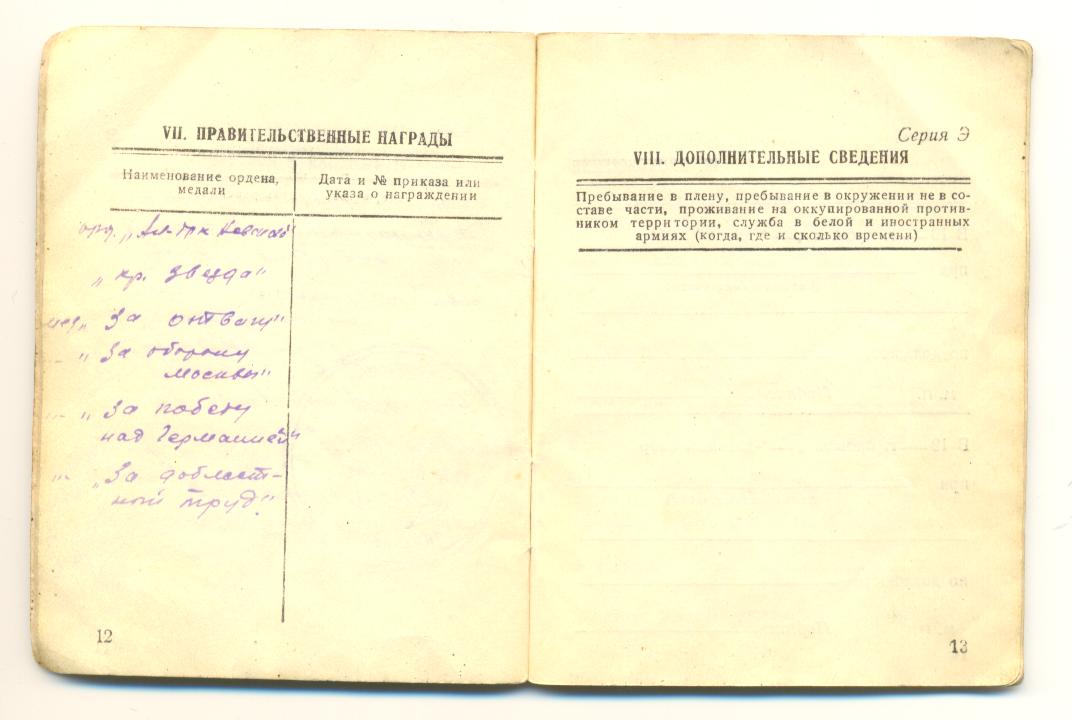 VII. ПРАВИТЕЛЬСТВЕННЫЕ НАГРАДЫ
Наименование ордена,
медали
Дата и № приказа или
указа о награждении
орд. „ Невский"
„кр. звезда"
мед. „За отвагу"
... „За оборону
Москвы"
... „За победу
над Германией"
... „За доблест-
ный труд."
12
Серия Э
VIII. ДОПОЛНИТЕЛЬНЫЕ СВЕДЕНИЯ
Пребывание в плену, пребывание в окружении не в со-
ставе части, проживание на оккупированной против-
ником территории, служба в белой и иностранных
армиях (когда, где и сколько времени)
13